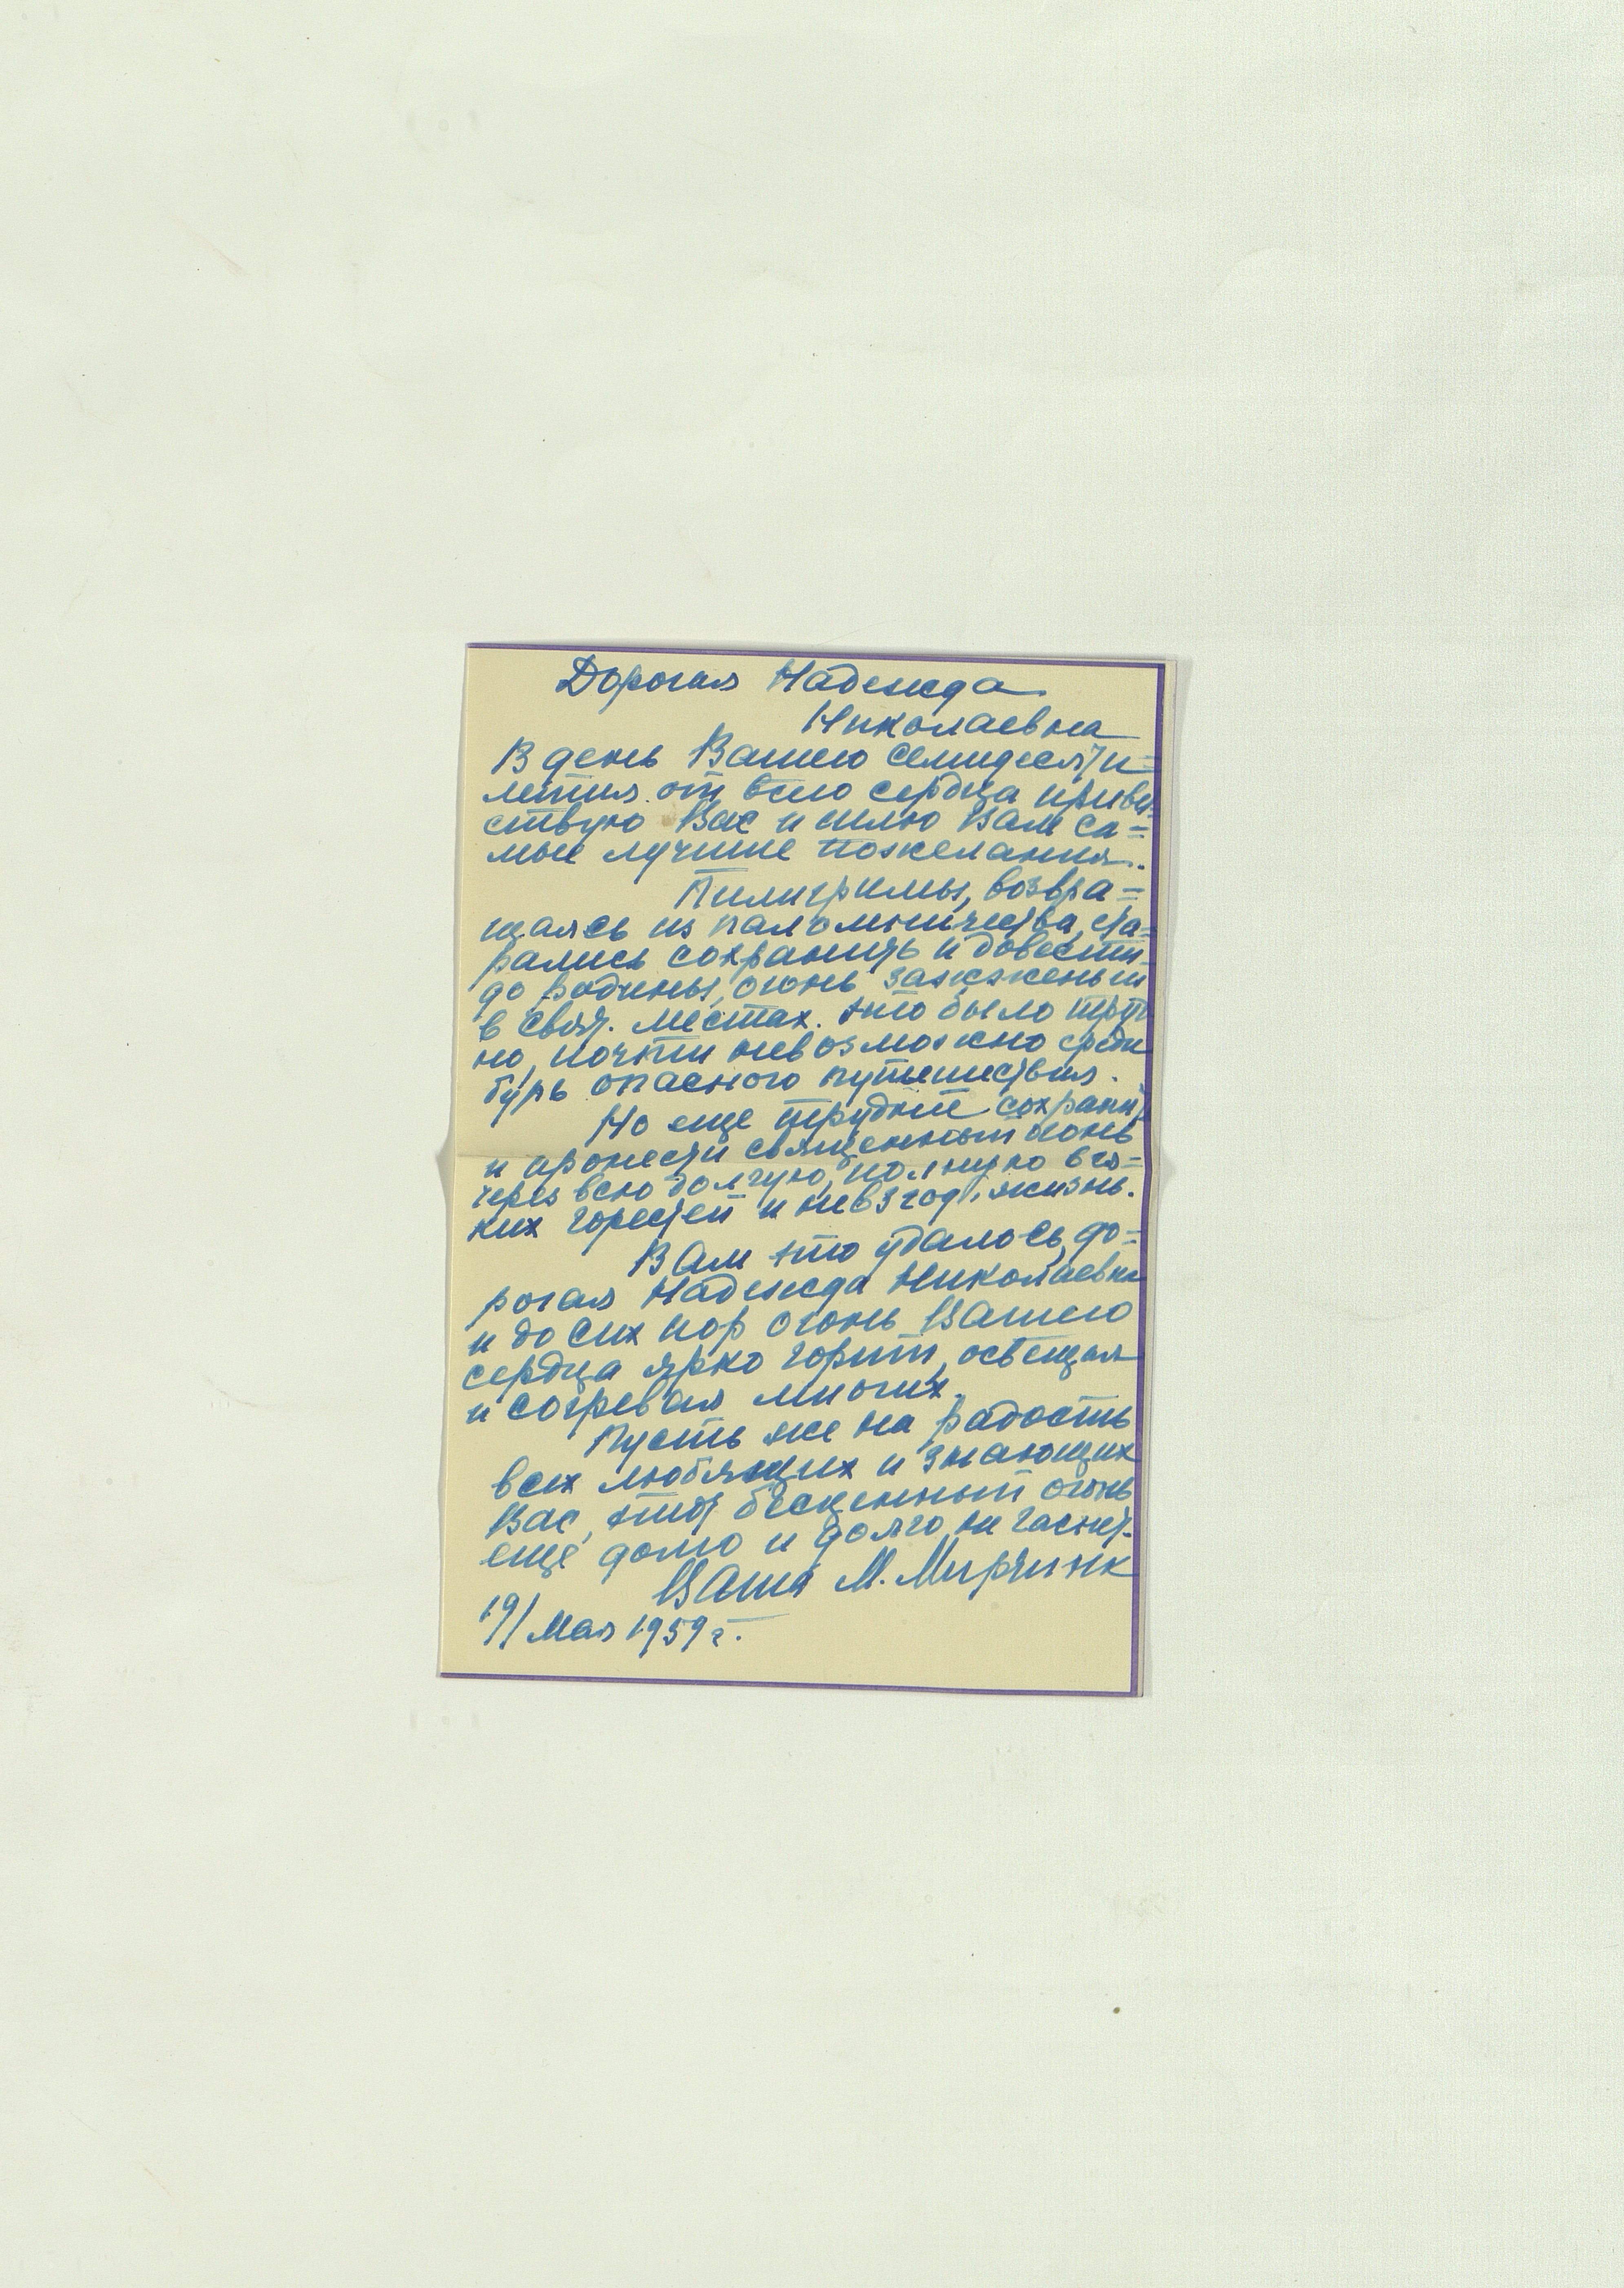 Дорогая Надежда
Николаевна
В день Вашего семидесяти=
летия от всего сердца привет-
ствую Вас и шлю Вам са=
мые лучшие пожелания.
Пилигримы, возвра=
щаясь из паломничества, ста=
рались сохранить и довести
до родины, огонь зажженый
в свят. местах. Это было труд
но, почти невозможно среди
бурь опасного путешествия.
Но еще трудней сохранить
и пронести священный огонь
через всю долгую, полную вся=
ких горестей и невзгод, жизнь.
Вам это удалось, до=
рогая Надежда Николаевна
и до сих пор огонь Вашего
сердца ярко горит, освещая
и согревая многих.
Пусть же на радость
всех любящих и знающих
Вас, этот бесценный огонь
еще долго и долго не гаснет.
Ваша М. Мирчинк
19/ Мая 1959 г.